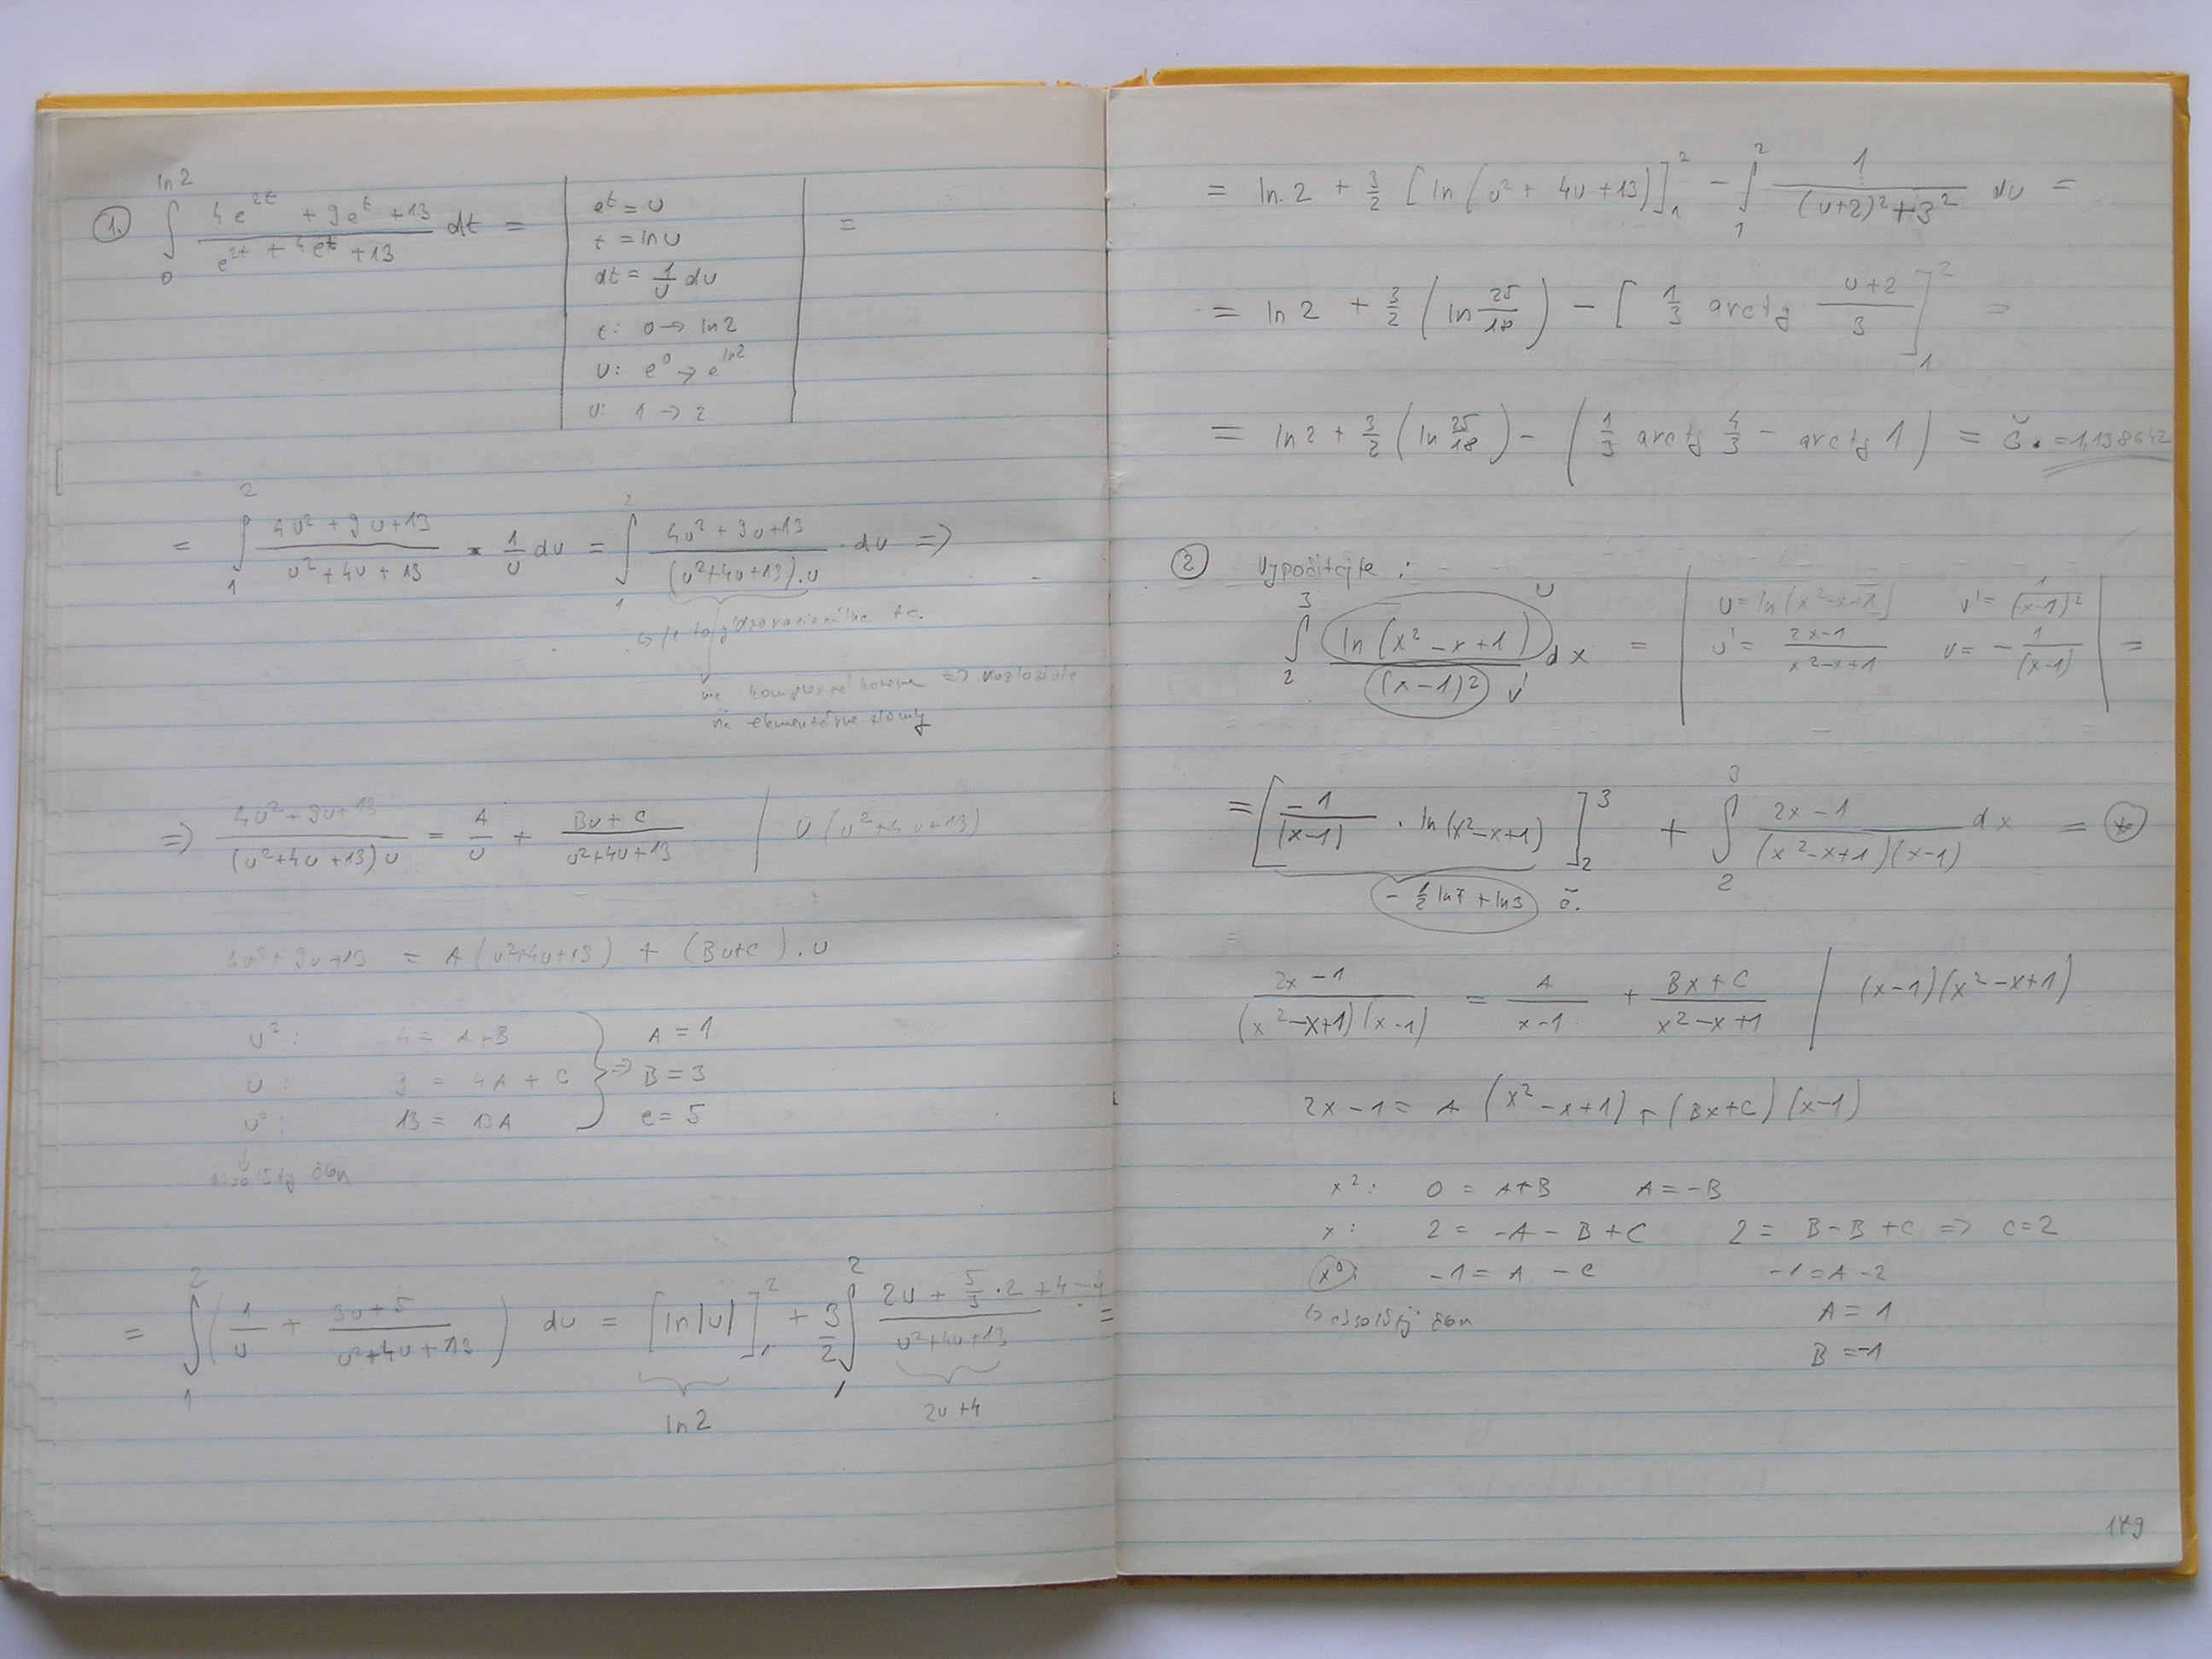 1. ∫₀^{ln 2} (4e^{2t} + 9e^t + 13)/(e^{2t} + 4e^t + 13) dt = | e^t = u
t = ln u
dt = 1/u du
t: 0 → ln 2
u: e^0 → e^{ln 2}
u: 1 → 2 | =
= ∫₁² (4u² + 9u + 13)/(u² + 4u + 13) · 1/u du = ∫₁² (4u² + 9u + 13)/((u² + 4u + 13).u) du ⇒
má komplexné korene ⇒
na elementárne zlomky
⇒ (4u² + 9u + 13)/((u² + 4u + 13)u) = A/u + (Bu + C)/(u² + 4u + 13) | u(u² + 4u + 13)
4u² + 9u + 13 = A(u² + 4u + 13) + (Bu + C).u
u²: 4 = A + B } ⇒ A = 1
u: 9 = 4A + C B = 3
u⁰: 13 = 13A C = 5
absolútny člen
= ∫₁² (1/u + (3u + 5)/(u² + 4u + 13)) du = [ln|u|]₁² + 3/2 ∫₁² (2u + 5/3 · 2 + 4 − 4)/(u² + 4u + 13) =
ln 2 2u + 4
= ln 2 + 3/2 [ln(u² + 4u + 13)]₁² − ∫₁² 1/((u+2)² + 3²) du =
= ln 2 + 3/2 (ln 25/18) − [1/3 arctg (u+2)/3]₁² =
= ln 2 + 3/2 (ln 25/18) − (1/3 arctg 4/3 − arctg 1) = č. = 1,138642
2 Vypočítajte :
∫₂³ ln(x² − x + 1)/(x−1)² dx = | u = ln(x² − x + 1) v' = 1/(x−1)²
u v' u' = (2x−1)/(x² − x + 1) v = − 1/(x−1) | =
= [−1/(x−1) · ln(x² − x + 1)]₂³ + ∫₂³ (2x − 1)/((x² − x + 1)(x−1)) dx = *
− 1/2 ln 7 + ln 3 č.
(2x − 1)/((x² − x + 1)(x−1)) = A/(x−1) + (Bx + C)/(x² − x + 1) | (x−1)(x² − x + 1)
2x − 1 = A(x² − x + 1) + (Bx + C)(x−1)
x²: 0 = A + B A = −B
x: 2 = −A − B + C 2 = B − B + C ⇒ C = 2
x⁰: −1 = A − C −1 = A − 2
↳ absolútny člen A = 1
B = −1
149